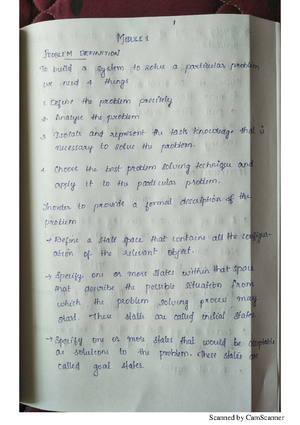 1
MODULE 1
PROBLEM DEFINITION
To build a system to solve a particular problem
we need 4 things
1. Define the problem precisely
2. Analyse the problem
3. Isolate and represent the task knowledge that is
necessary to solve the problem.
4. Choose the best problem solving technique and
apply it to the particular problem.
Inorder to provide a formal description of the
problem
→ Define a state space that contains all the configur-
ation of the relevant object.
→ Specify one or more states within that space
that describe the possible situation from
which the problem solving process may
start. These states are called initial states.
→ Specify one or more states that would be acceptable
as solutions to the problem. These states are
called goal states.
Scanned by CamScanner